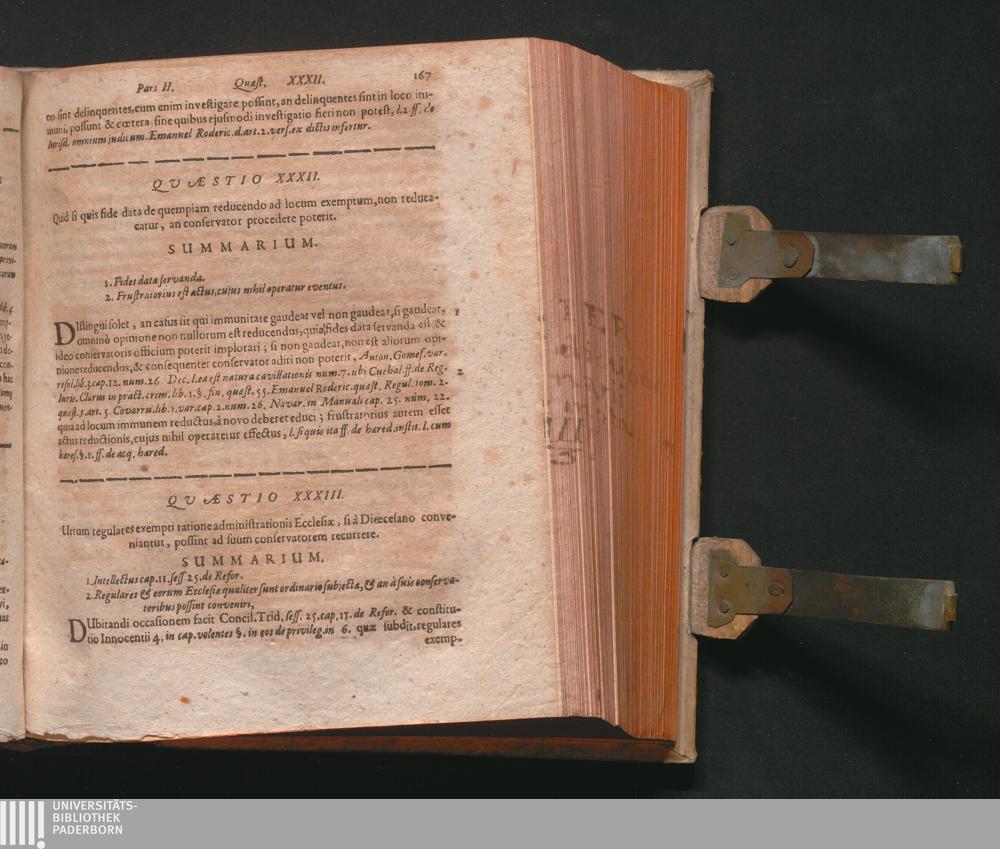 Pars II. Quæst. XXXII. 167
eo sint delinquentes, cum enim investigare possint, an delinquentes sint in loco im-
muni, possunt & cœtera sine quibus ejusmodi investigatio fieri non potest, l.2.ff. de
Iurisd. omnium judicum. Emanuel Roderic. d. art. 2. vers. ex dictis infertur.
QVÆSTIO XXXII.
Quid si quis fide data de quempiam reducendo ad locum exemptum, non reduca-
catur, an conservator procedere poterit.
SUMMARIUM.
1. Fides data servanda.
2. Frustratorius est actus, cujus nihil operatur eventus.
DIstingui solet, an casus sit qui immunitate gaudeat vel non gaudeat, si gaudeat, 1
omninò opinione non nullorum est reducendus, quia fides data servanda est &
ideo conservatoris officium poterit implorari; si non gaudeat, non est aliorum opi-
nione reducendus, & consequenter conservator adiri non poterit, Anton. Gomes. var.
resol. lib. 3. cap. 12. num. 26 Dec. l. ea est natura cavillationis num. 7. ubi Cuchal. ff. de Reg. 2
Iuris. Clarus in pract. crim. lib. 1. §. fin. quæst. 55. Emanuel Roderic. quæst. Regul. tom. 2.
quæst. 3. art. 5. Covarru. lib. 1. var. cap. 2. num. 26. Navar. in Manuali cap. 25. núm. 22.
quia ad locum immunem reductus, à novo deberet educi; frustratorius autem esset
actus reductionis, cujus nihil operatetur effectus, l. si quis ita ff. de hæred. instit. l. cum
heres. §. 1. ff. de acq. hæred.
QVÆSTIO XXXIII.
Utrum regulares exempti ratione administrationis Ecclesiæ, si à Diœcesano conve-
niantur, possint ad suum conservatorem recurrere.
SUMMARIUM.
1. Intellectus cap. 11. sess. 25. de Refor.
2. Regulares & eorum Ecclesiæ qualiter sunt ordinario subjectæ, & an à suis conserva-
toribus possint conveniri,
DUbitandi occasionem facit Concil. Trid. sess. 25. cap. 11. de Refor. & constitu-
tio Innocentii 4. in cap. volentes §. in eos de privileg. in 6. quæ subdit, regulares
exemp-
UNIVERSITÄTS-
BIBLIOTHEK
PADERBORN